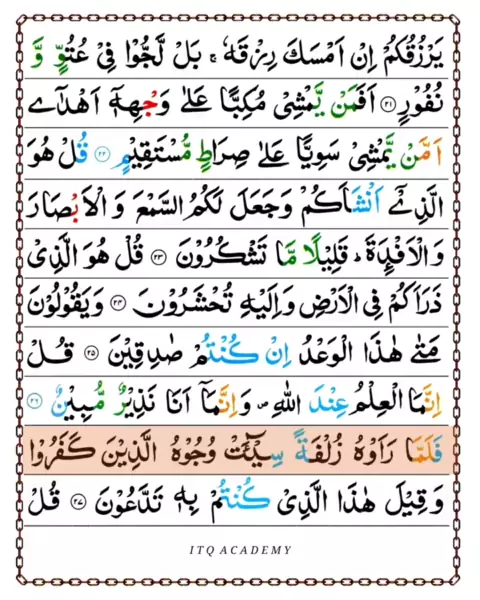 يَرْزُقُكُمْ اِنْ اَمْسَكَ رِزْقَهٗ ۚ بَلْ لَّجُّوْا فِيْ عُتُوٍّ وَّ
نُفُوْرٍ ﴿۲۱﴾ اَفَمَنْ يَّمْشِيْ مُكِبًّا عَلٰى وَجْهِهٖٓ اَهْدٰٓى
اَمَّنْ يَّمْشِيْ سَوِيًّا عَلٰى صِرَاطٍ مُّسْتَقِيْمٍ ﴿۲۲﴾ قُلْ هُوَ
الَّذِيْٓ اَنْشَاَكُمْ وَجَعَلَ لَكُمُ السَّمْعَ وَ الْاَبْصَارَ
وَ الْاَفْـِٕدَةَ ؕ قَلِيْلًا مَّا تَشْكُرُوْنَ ﴿۲۳﴾ قُلْ هُوَ الَّذِيْ
ذَرَاَكُمْ فِي الْاَرْضِ وَ اِلَيْهِ تُحْشَرُوْنَ ﴿۲۴﴾ وَ يَقُوْلُوْنَ
مَتٰى هٰذَا الْوَعْدُ اِنْ كُنْتُمْ صٰدِقِيْنَ ﴿۲۵﴾ قُلْ
اِنَّمَا الْعِلْمُ عِنْدَ اللّٰهِ ۪ وَ اِنَّمَاۤ اَنَا نَذِيْرٌ مُّبِيْنٌ ﴿۲۶﴾
فَلَمَّا رَاَوْهُ زُلْفَةً سِيْٓـَٔتْ وُجُوْهُ الَّذِيْنَ كَفَرُوْا
وَ قِيْلَ هٰذَا الَّذِيْ كُنْتُمْ بِهٖ تَدَّعُوْنَ ﴿۲۷﴾ قُلْ
ITQ ACADEMY